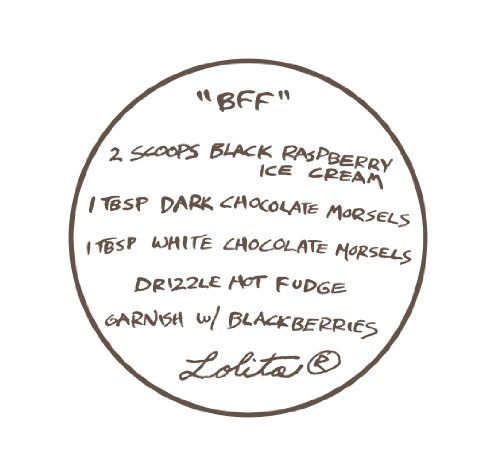 "BFF"
2 SCOOPS BLACK RASPBERRY
ICE CREAM
1 TBSP DARK CHOCOLATE MORSELS
1 TBSP WHITE CHOCOLATE MORSELS
DRIZZLE HOT FUDGE
GARNISH W/ BLACKBERRIES
Lolita ®